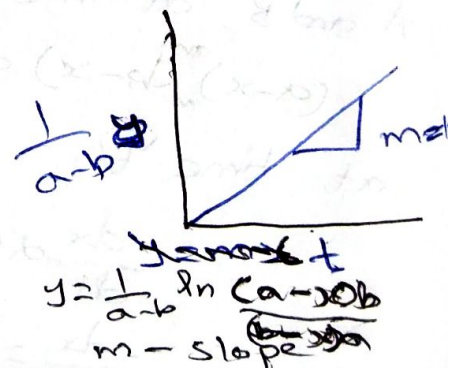 1
a-b
m=
t
y = 1/a-b ln (a-x)b
(b-x)a
m - slope